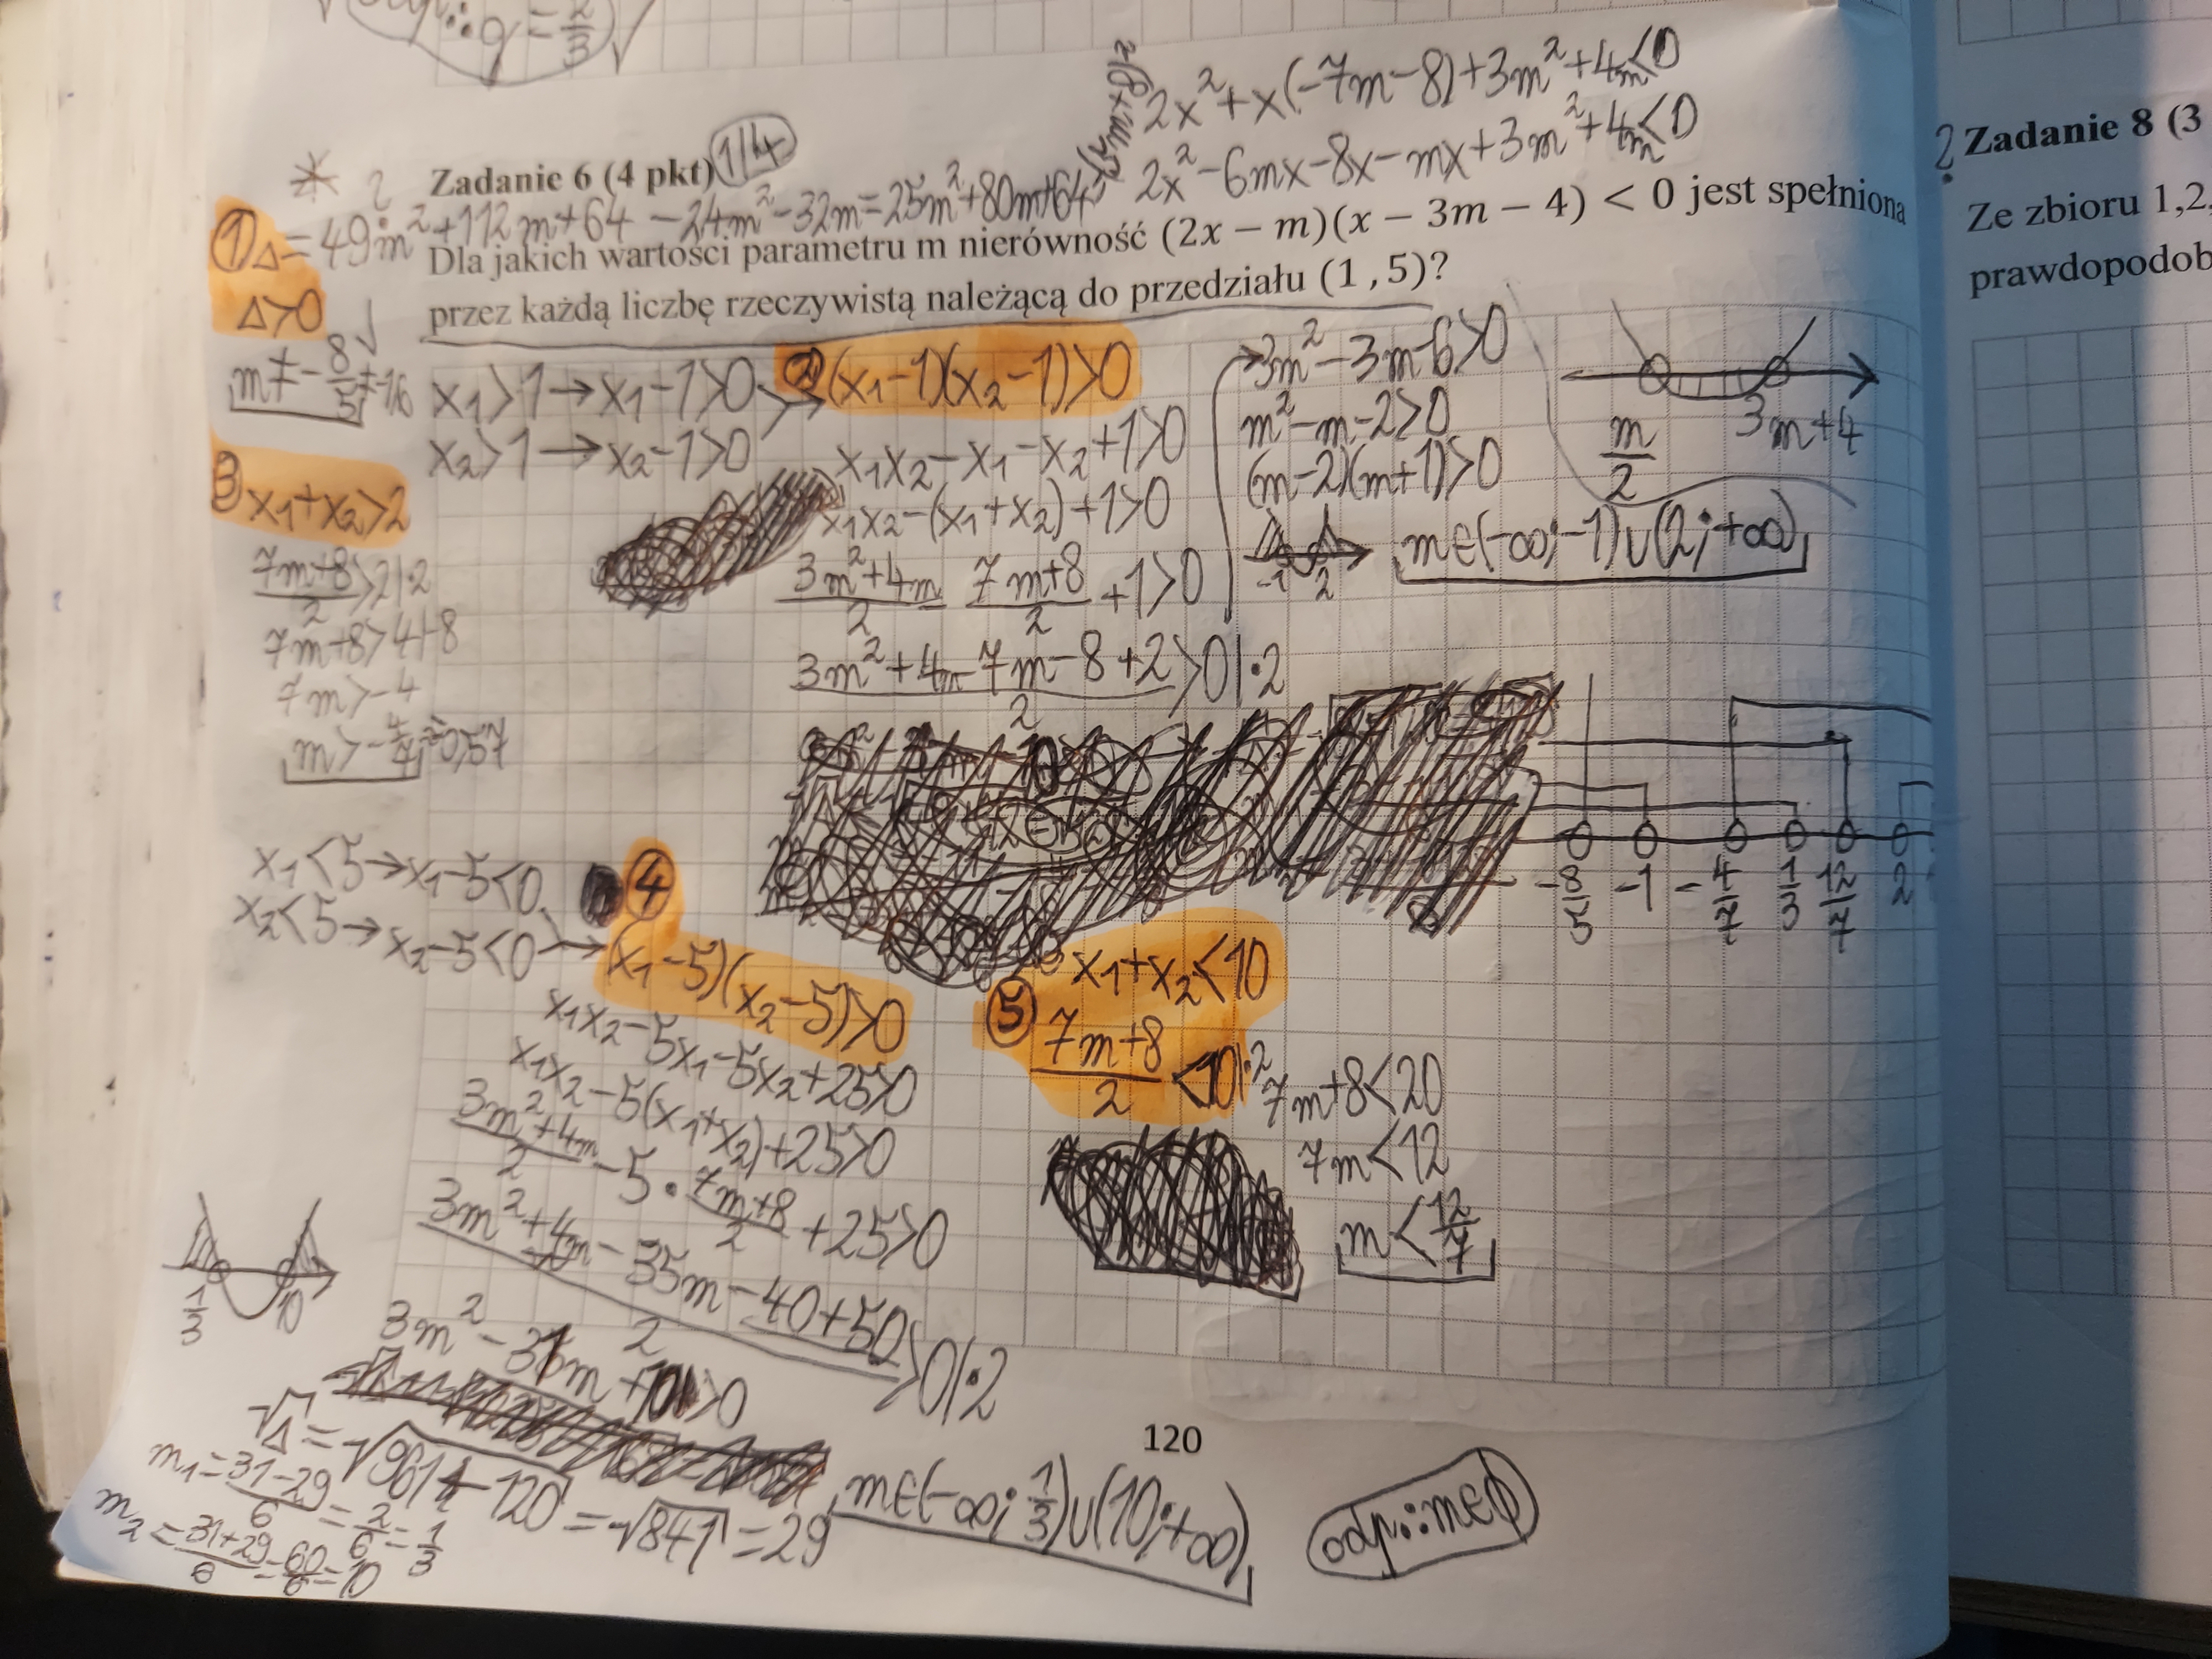 q = 2/3
2x² + x(-7m-8) + 3m² + 4m < 0
2x² - 6mx - 8x - mx + 3m² + 4m < 0
* ? Zadanie 6 (4 pkt) 1/4
① Δ = 49m² + 112m + 64 - 24m² - 32m = 25m² + 80m + 64
Dla jakich wartości parametru m nierówność (2x − m)(x − 3m − 4) < 0 jest spełniona
przez każdą liczbę rzeczywistą należącą do przedziału (1 ,5)?
Δ>0
m ≠ -8/5 ≠ -1,6
x₁>1 → x₁-1>0
x₂>1 → x₂-1>0
② (x₁-1)(x₂-1)>0
x₁x₂-x₁-x₂+1>0
x₁x₂-(x₁+x₂)+1>0
3m²+4m/2 - 7m+8/2 +1>0
3m²+4m-7m-8+2/2 >0 |·2
3m²-3m-6>0
m²-m-2>0
(m-2)(m+1)>0
-1 2
m∈(-∞;-1)∪(2;+∞)
m/2 3m+4
③ x₁+x₂>2
7m+8/2 >2 |·2
7m+8>4 |-8
7m>-4
m>-4/7 ≈ -0,57
-8/5 -1 -4/7 1/3 12/7 2
x₁<5 → x₁-5<0
x₂<5 → x₂-5<0
④ (x₁-5)(x₂-5)>0
x₁x₂-5x₁-5x₂+25>0
x₁x₂-5(x₁+x₂)+25>0
3m²+4m/2 -5·7m+8/2 +25>0
3m²+4m-35m-40+50/2 >0 |·2
3m²-31m+10>0
1/3 10
√Δ = √961-120 = √841 = 29
m₁ = 31-29/6 = 2/6 = 1/3
m₂ = 31+29/6 = 60/6 = 10
m∈(-∞;1/3)∪(10;+∞)
⑤ x₁+x₂<10
7m+8/2 <10 |·2
7m+8<20
7m<12
m<12/7
120
odp.: m∈∅
? Zadanie 8 (3
Ze zbioru 1,2,
prawdopodob